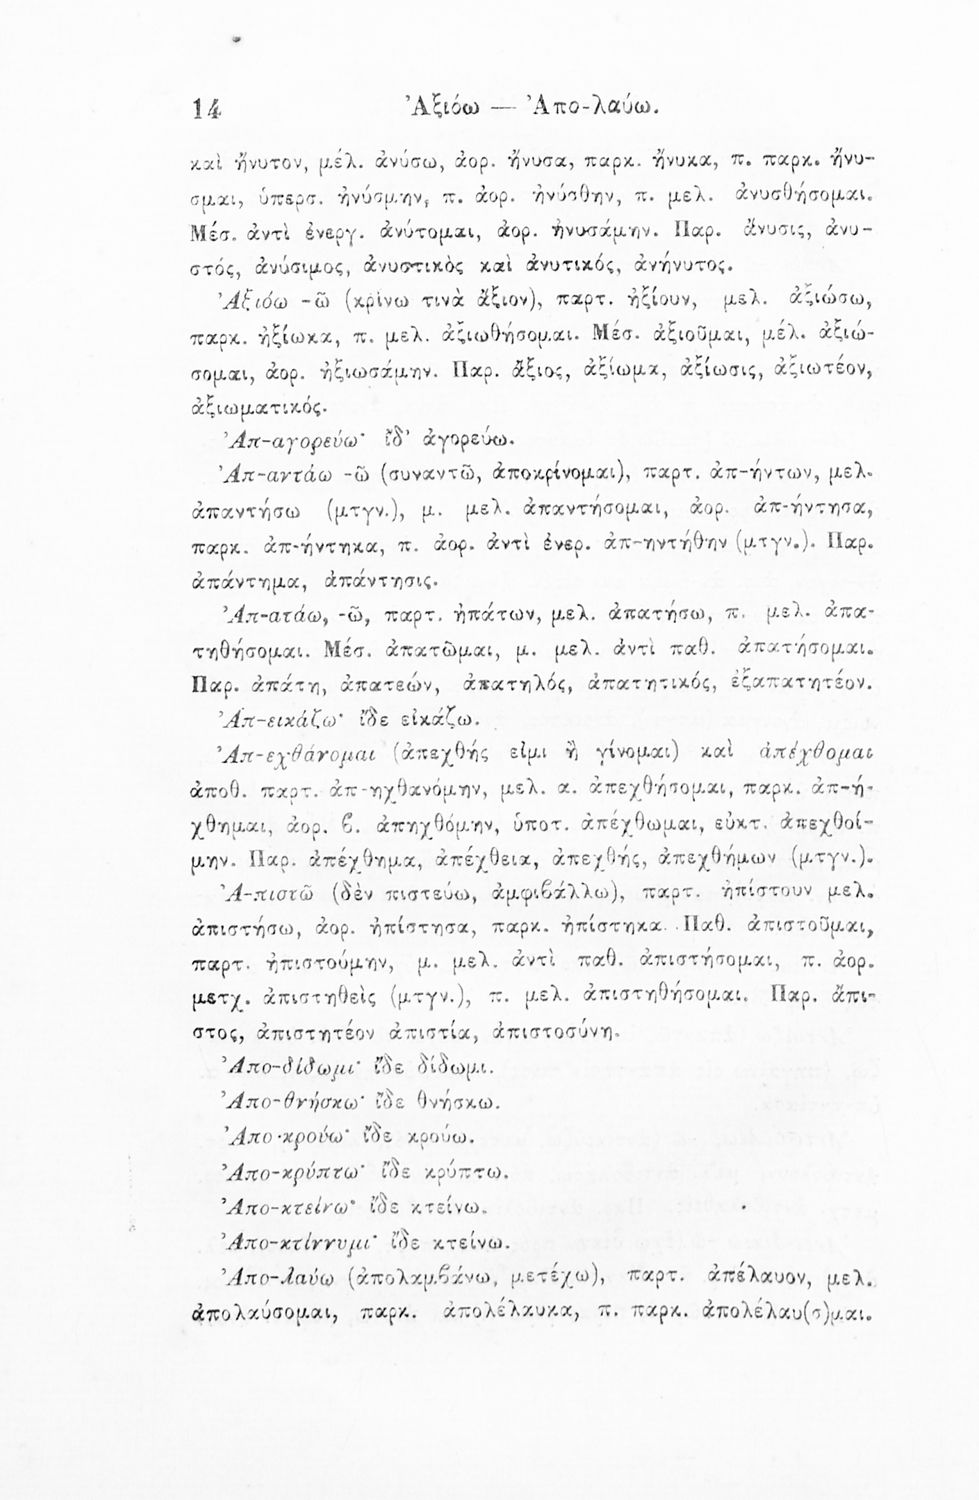 14 Ἀξιόω — Ἀπο-λαύω.
καὶ ἤνυτον, μέλ. ἀνύσω, ἀορ. ἤνυσα, παρκ. ἤνυκα, π. παρκ. ἤνυ-
σμαι, ὑπερσ. ἠνύσμην, π. ἀορ. ἠνύσθην, π. μελ. ἀνυσθήσομαι.
Μέσ. ἀντὶ ἐνεργ. ἀνύτομαι, ἀορ. ἠνυσάμην. Παρ. ἄνυσις, ἀνυ-
στός, ἀνύσιμος, ἀνυστικὸς καὶ ἀνυτικός, ἀνήνυτος.
Ἀξιόω -ῶ (κρίνω τινὰ ἄξιον), παρτ. ἠξίουν, μελ. ἀξιώσω,
παρκ. ἠξίωκα, π. μελ. ἀξιωθήσομαι. Μέσ. ἀξιοῦμαι, μέλ. ἀξιώ-
σομαι, ἀορ. ἠξιωσάμην. Παρ. ἄξιος, ἀξίωμα, ἀξίωσις, ἀξιωτέον,
ἀξιωματικός.
Ἀπ-αγορεύω· ἴδ' ἀγορεύω.
Ἀπ-αντάω -ῶ (συναντῶ, ἀποκρίνομαι), παρτ. ἀπ-ήντων, μελ.
ἀπαντήσω (μτγν.), μ. μελ. ἀπαντήσομαι, ἀορ. ἀπ-ήντησα,
παρκ. ἀπ-ήντηκα, π. ἀορ. ἀντὶ ἐνερ. ἀπ-ηντήθην (μτγν.). Παρ.
ἀπάντημα, ἀπάντησις.
Ἀπ-ατάω, -ῶ, παρτ. ἠπάτων, μελ. ἀπατήσω, π. μελ. ἀπα-
τηθήσομαι. Μέσ. ἀπατῶμαι, μ. μελ. ἀντὶ παθ. ἀπατήσομαι.
Παρ. ἀπάτη, ἀπατεών, ἀπατηλός, ἀπατητικός, ἐξαπατητέον.
Ἀπ-εικάζω· ἴδε εἰκάζω.
Ἀπ-εχθάνομαι (ἀπεχθής εἰμι ἢ γίνομαι) καὶ ἀπέχθομαι
ἀποθ. παρτ. ἀπ-ηχθανόμην, μελ. α. ἀπεχθήσομαι, παρκ. ἀπ-ή-
χθημαι, ἀορ. β. ἀπηχθόμην, ὑποτ. ἀπέχθωμαι, εὐκτ. ἀπεχθοί-
μην. Παρ. ἀπέχθημα, ἀπέχθεια, ἀπεχθής, ἀπεχθήμων (μτγν.).
Ἀ-πιστῶ (δὲν πιστεύω, ἀμφιβάλλω), παρτ. ἠπίστουν μελ.
ἀπιστήσω, ἀορ. ἠπίστησα, παρκ. ἠπίστηκα. Παθ. ἀπιστοῦμαι,
παρτ. ἠπιστούμην, μ. μελ. ἀντὶ παθ. ἀπιστήσομαι, π. ἀορ.
μετχ. ἀπιστηθεὶς (μτγν.), π. μελ. ἀπιστηθήσομαι. Παρ. ἄπι-
στος, ἀπιστητέον ἀπιστία, ἀπιστοσύνη.
Ἀπο-δίδωμι· ἴδε δίδωμι.
Ἀπο-θνήσκω· ἴδε θνήσκω.
Ἀπο-κρούω· ἴδε κρούω.
Ἀπο-κρύπτω· ἴδε κρύπτω.
Ἀπο-κτείνω· ἴδε κτείνω.
Ἀπο-κτίννυμι· ἴδε κτείνω.
Ἀπο-λαύω (ἀπολαμβάνω, μετέχω), παρτ. ἀπέλαυον, μελ.
ἀπολαύσομαι, παρκ. ἀπολέλαυκα, π. παρκ. ἀπολέλαυ(σ)μαι.